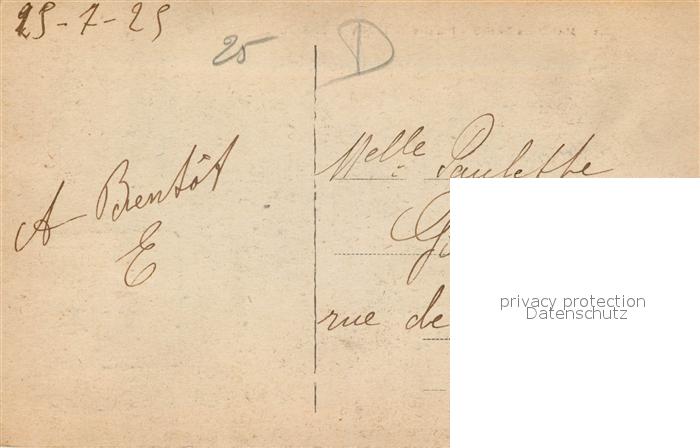 25-7-25
25
D
A Bientôt
E
Melle Paulette
rue de
privacy protection
Datenschutz